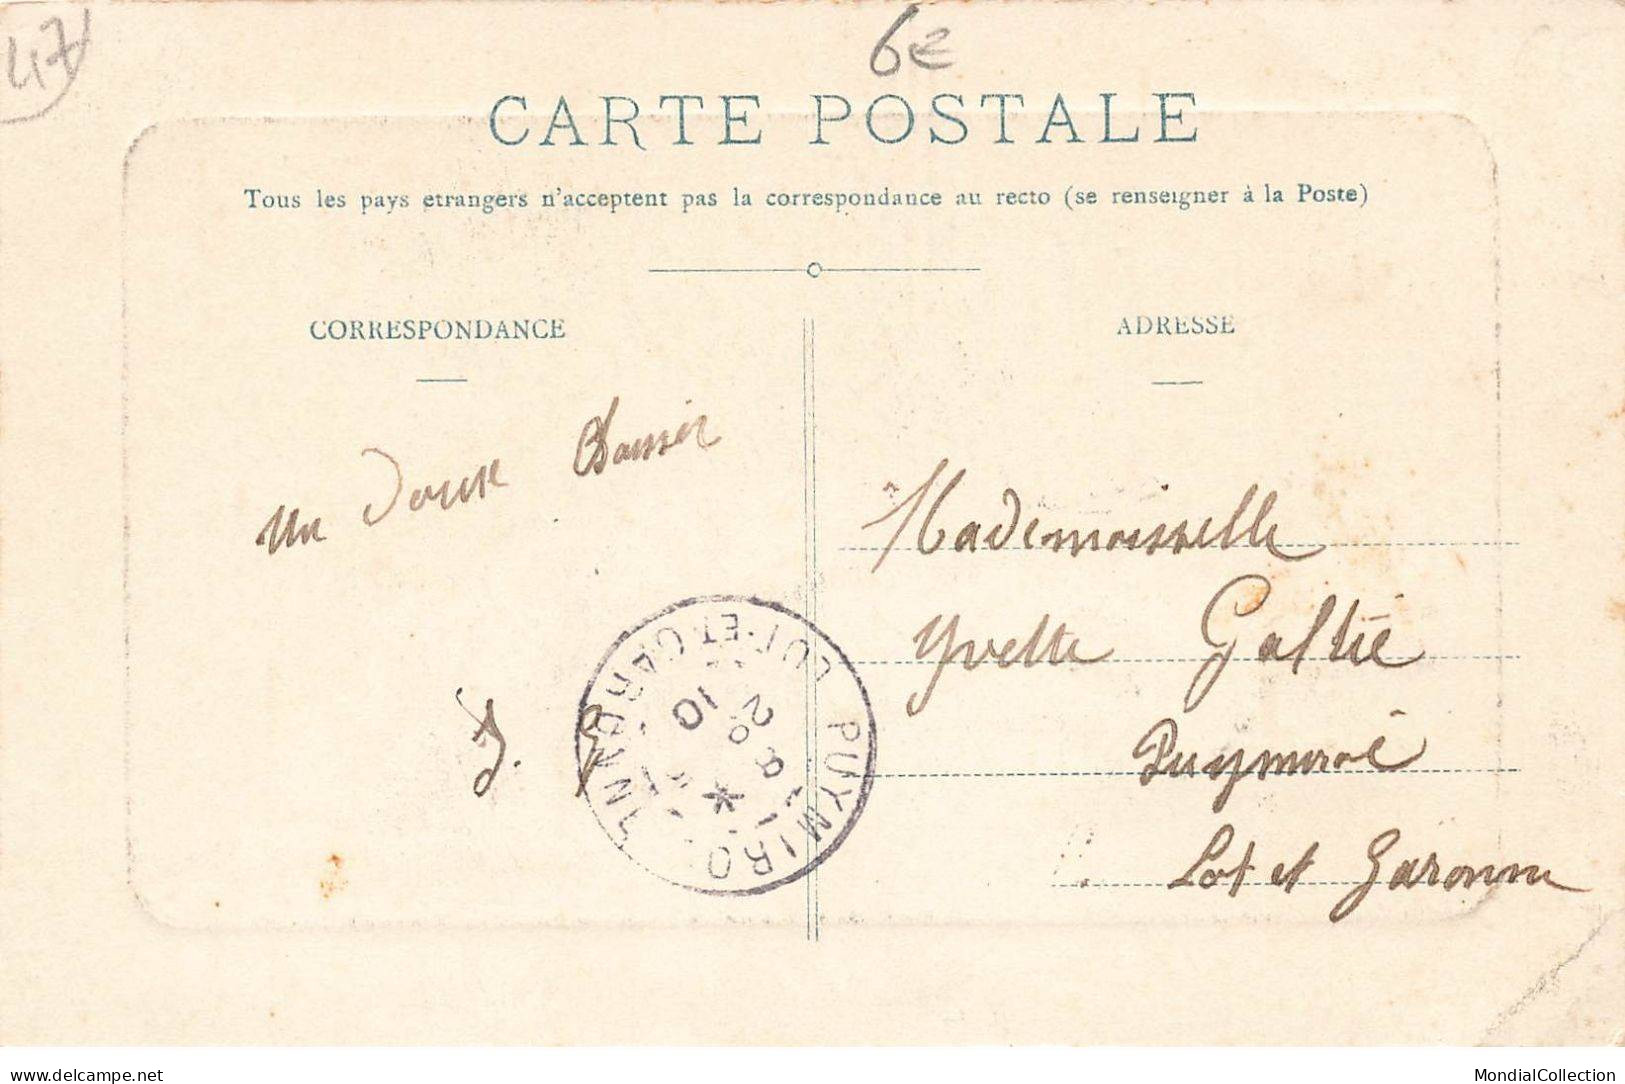 47
6€
CARTE POSTALE
Tous les pays etrangers n'acceptent pas la correspondance au recto (se renseigner à la Poste)
CORRESPONDANCE
ADRESSE
un doux
Mademoiselle
Yvette Galtié
Puymirol
Lot et Garonne
PUYMIROL
LOT-ET-GARONNE
28
10
delcampe.net
MondialCollection